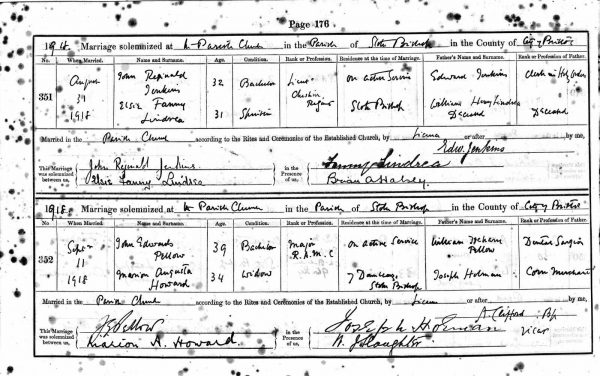 Page 176
1918. Marriage solemnized at the Parish Church in the Parish of Stoke Bishop in the County of City of Bristol
No. When Married. Name and Surname. Age. Condition. Rank or Profession. Residence at time of Marriage. Father's Name and Surname. Rank or Profession of Father.
351 August 31 1918
John Reginald Jenkins 32 Bachelor Lieut Cheshire Regiment on active Service Edward Jenkins Clerk in Holy Orders
Elsie Fanny Lindrea 31 Spinster Stoke Bishop William Henry Lindrea Deceased Deceased
Married in the Parish Church according to the Rites and Ceremonies of the Established Church, by Licence or after by me,
Edw. Jenkins
This Marriage was solemnized between us,
John Reginald Jenkins
Elsie Fanny Lindrea
in the Presence of us,
Fanny Lindrea
Brian A Halsey
1918. Marriage solemnized at the Parish Church in the Parish of Stoke Bishop in the County of City of Bristol
No. When Married. Name and Surname. Age. Condition. Rank or Profession. Residence at the time of Marriage. Father's Name and Surname. Rank or Profession of Father.
352 Sept 11 1918
John Edwards Pellow 39 Bachelor Major R.A.M.C on active Service William Pellow Dental Surgeon
Marion Augusta Howard 34 Widow 7 Stoke Bishop Joseph Holman Corn Merchant
Married in the Parish Church according to the Rites and Ceremonies of the Established Church, by Licence or after by me,
A. Clifford
Vicar
This Marriage was solemnized between us,
J E Pellow
Marion A. Howard
in the Presence of us,
Joseph Holman
Slaughter